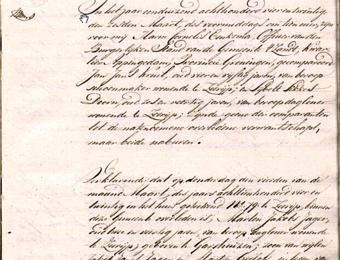 In het jaar eenduizend achthonderd vier en twintig
den zesden Maart, des voormiddags om tien ure, zijn
voor mij Harm Cornelis Cenkema, Officier van den
Burgerlijken Stand van de Gemeente 't Zandt, kwar-
tier Appingedam, Provincie Groningen, gecompareerd
Jan Jans Kruil, oud vier en vijftig jaren, van beroep
schoenmaker wonende te Zeerijp, en
Doorn, oud zes en veertig jaren, van beroep dagloner
wonende te Zeerijp; Zijnde gemelde comparanten
tot de natenoemene overledene vermaagschapt,
maar beide naburen.
Verklarende dat op donderdag den vierden van de
maand Maart, des jaars achttienhonderd vier en
twintig in het huis getekend N. 79 te Zeerijp, binnen
deze Gemeente overleden is; Marten Jakobs Jager,
oud twee en veertig jaren, van beroep dagloner wonende
te Zeerijp; geboren te Garshuizen; zoon van wijlen